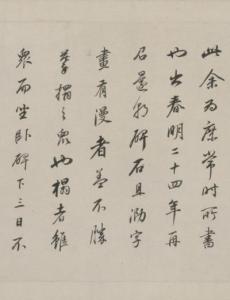 此余為庶常時所書
也出春明二十四年再
召還朝碑石且泐字
畫有漫者蓋不勝
摹搨之眾也搨者雖
眾而坐臥碑下三日不